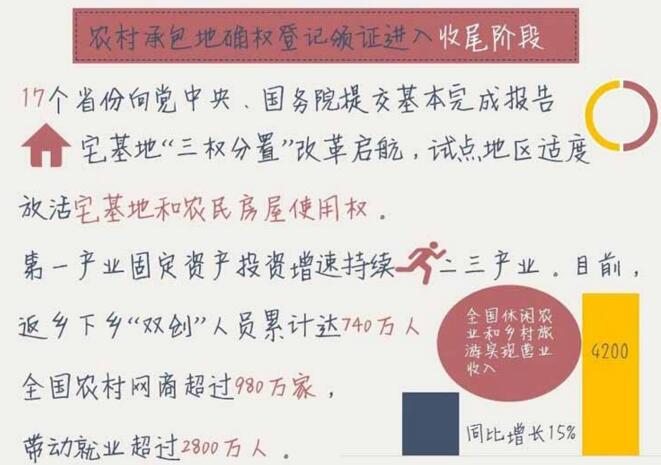 农村承包地确权登记颁证进入收尾阶段
17个省份向党中央、国务院提交基本完成报告
宅基地“三权分置”改革启航，试点地区适度
放活宅基地和农民房屋使用权。
第一产业固定资产投资增速持续 二三产业。目前，
返乡下乡“双创”人员累计达740万人
全国农村网商超过980万家，
带动就业超过2800万人。
全国休闲农
业和乡村旅
游实现营业
收入
4200
同比增长15%